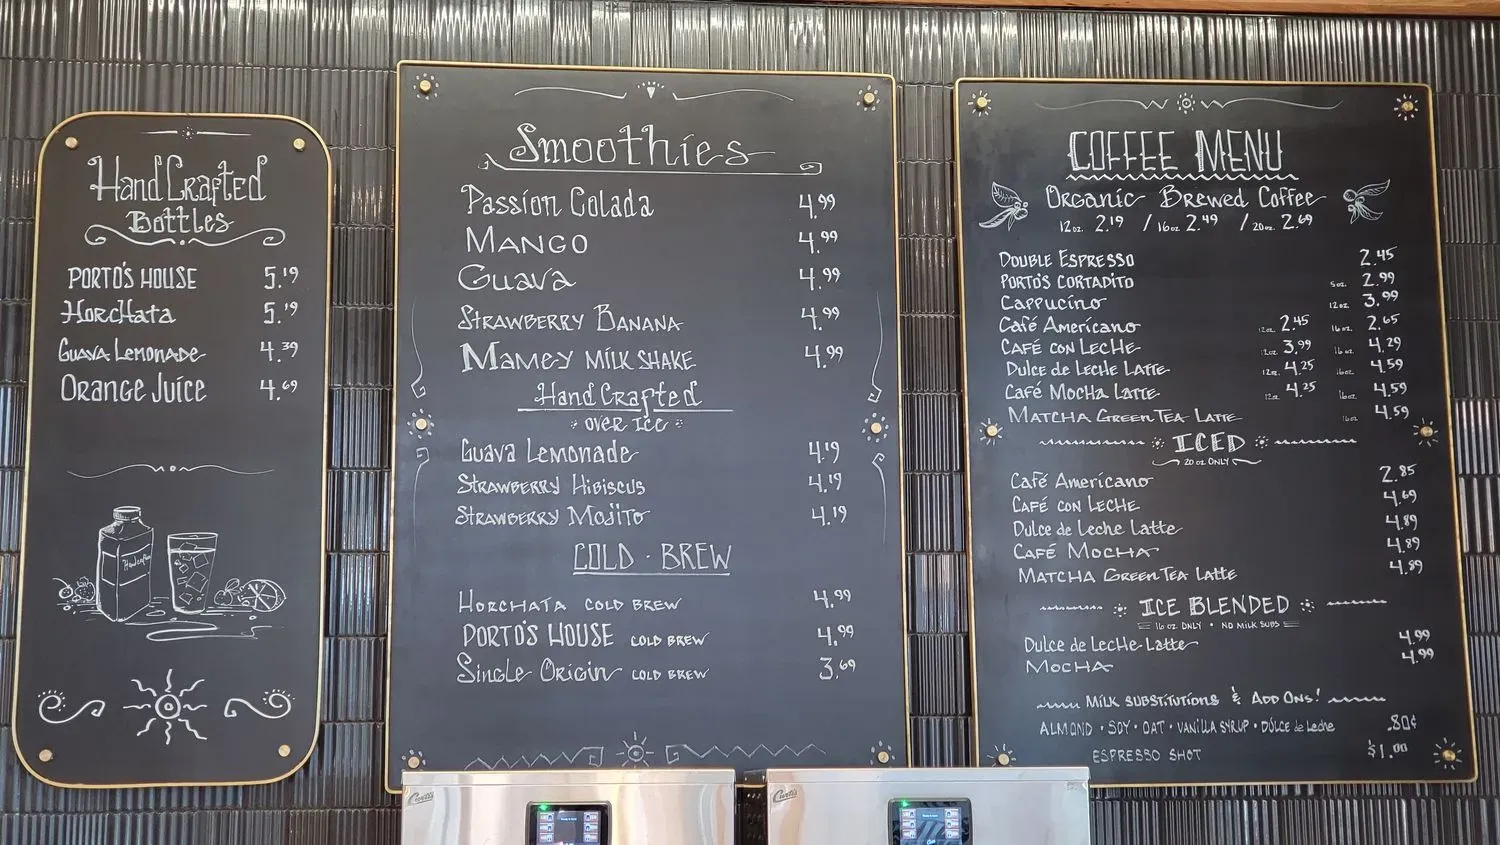 HandCrafted
Bottles
PORTO'S HOUSE 5.19
HorcHata 5.19
Guava Lemonade 4.39
Orange Juice 4.69
Smoothies
Passion Colada 4.99
MANGO 4.99
Guava 4.99
STRAWBERRY BANANA 4.99
MAMEY MILK SHAKE 4.99
HandCrafted
OVER ICE
Guava Lemonade 4.19
STRAWBERRY HIBISCUS 4.19
STRAWBERRY MOJITO 4.19
COLD · BREW
HORCHATA COLD BREW 4.99
PORTO'S HOUSE COLD BREW 4.99
Single Origin COLD BREW 3.69
COFFEE MENU
Organic Brewed Coffee
12oz. 2.19 / 16oz. 2.49 / 20oz. 2.69
DOUBLE ESPRESSO 2.45
PORTO'S CORTADITO 5oz. 2.99
Cappucino 12oz. 3.99
Café Americano 12oz. 2.45 16oz. 2.65
CAFÉ CON LECHE 12oz. 3.99 16oz. 4.29
Dulce de Leche Latte 12oz. 4.25 16oz. 4.59
Café Mocha Latte 12oz. 4.25 16oz. 4.59
MATCHA Green Tea Latte 16oz. 4.59
ICED
20 oz ONLY
Café Americano 2.85
CAFÉ CON LECHE 4.69
Dulce de Leche Latte 4.89
CAFÉ MOCHA 4.89
MATCHA Green Tea Latte 4.89
ICE BLENDED
16 oz ONLY • NO MILK SUBS
Dulce de Leche Latte 4.99
MOCHA 4.99
MILK SUBSTITUTIONS & ADD ONS!
ALMOND • SOY • OAT • VANILLA SYRUP • DÚLCE de Leche .80¢
ESPRESSO SHOT $1.00
Curtis
Curtis